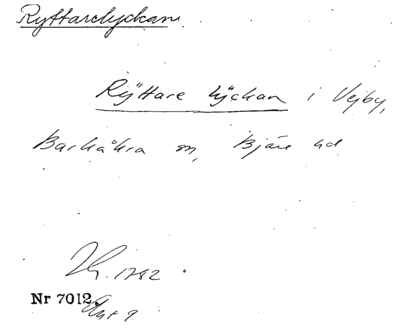 Ryttarelyckan
Rÿttare lÿckan i Vejby,
Barkåkra sn, Bjäre hd
1782.
Nr 7012.
Akt 9